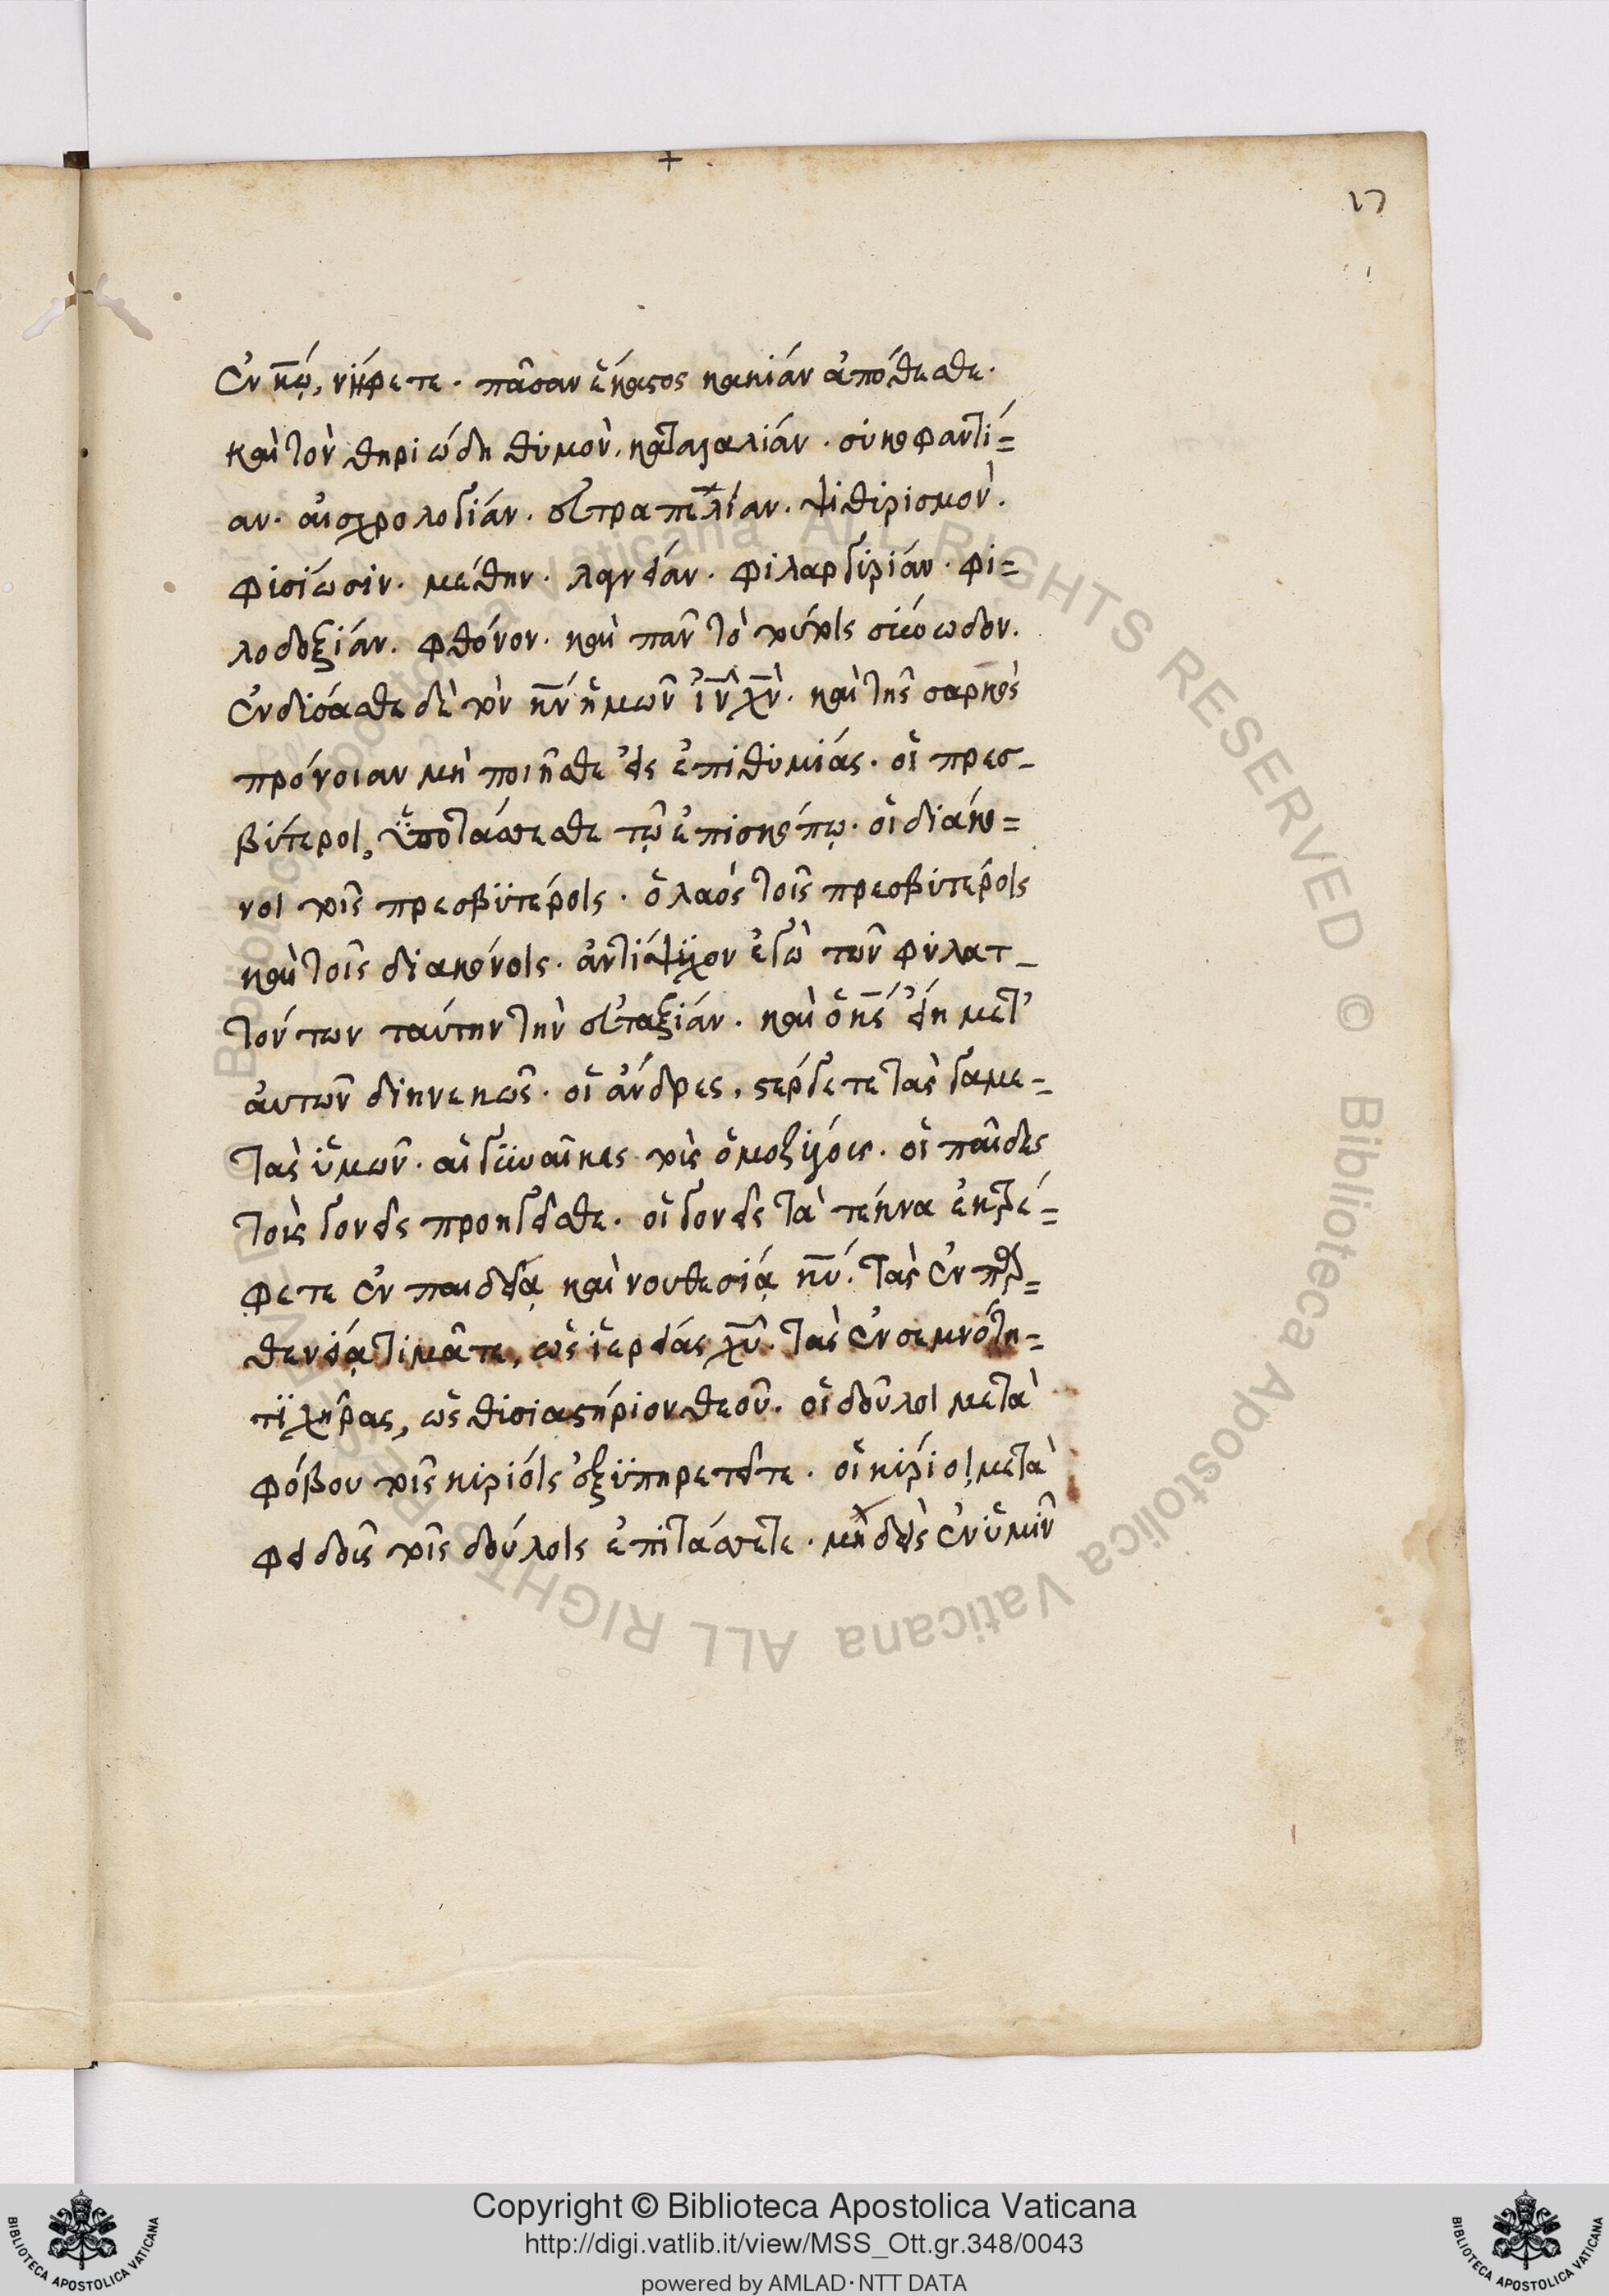 +
17
ἐν κ̅ω̅, νήφετε· πᾶσαν ἕκαστος κακίαν ἀπόθεσθε·
καὶ τὸν θηριώδη θυμὸν, καταλαλιάν· συκοφαντί=
αν· αἰσχρολογίαν· εὐτραπελίαν· ψιθυρισμὸν·
φυσίωσιν· μέθην· λαγνείαν· φιλαργυρίαν· φι=
λοδοξίαν· φθόνον· καὶ πᾶν τὸ τούτοις συνωδὸν·
ἐνδύσασθε δὲ τὸν κ̅ν̅ ἡμῶν ι̅ν̅ χ̅ν̅· καὶ τῆς σαρκὸς
πρόνοιαν μὴ ποιῆσθε εἰς ἐπιθυμίας· οἱ πρεσ-
βύτεροι, ὑποτάσσεσθε τῷ ἐπισκόπῳ· οἱ διάκο=
νοι τοῖς πρεσβϋτέροις· ὁ λαὸς τοῖς πρεσβυτέροις
καὶ τοῖς διακόνοις· ἀντίψυχον ἐγὼ τῶν φυλατ-
τόντων ταύτην τὴν εὐταξίαν· καὶ ὁ κ̅ς̅ εἴη μετ'
αὐτῶν διηνεκῶς· οἱ ἄνδρες, στέργετε τὰς γαμε-
τὰς ὑμῶν· αἱ γυναῖκες τοὺς ὁμοζύγους· οἱ παῖδες
τοὺς γονεῖς προηγεῖσθε· οἱ γονεῖς τὰ τέκνα ἐκτρέ=
φετε ἐν παιδείᾳ καὶ νουθεσίᾳ κ̅υ̅· τὰς ἐν παρ=
θενείᾳ τιμᾶτε, ὡς ἱερείας χ̅υ̅· τὰς ἐν σεμνότη=
τι χήρας, ὡς θυσιαστήριον θεοῦ· οἱ δοῦλοι μετὰ
φόβου τοῖς κυρίοις ἐξϋπηρετεῖτε· οἱ κύριοι μετὰ
φειδοῦς τοῖς δούλοις ἐπιτάσσετε· μηδεὶς ἐν ὑμῖν
Copyright © Biblioteca Apostolica Vaticana
http://digi.vatlib.it/view/MSS_Ott.gr.348/0043
powered by AMLAD·NTT DATA
BIBLIOTECA APOSTOLICA VATICANA
BIBLIOTECA APOSTOLICA VATICANA
© Biblioteca Apostolica Vaticana ALL RIGHTS RESERVED © Biblioteca Apostolica Vaticana ALL RIGHTS RESERVED